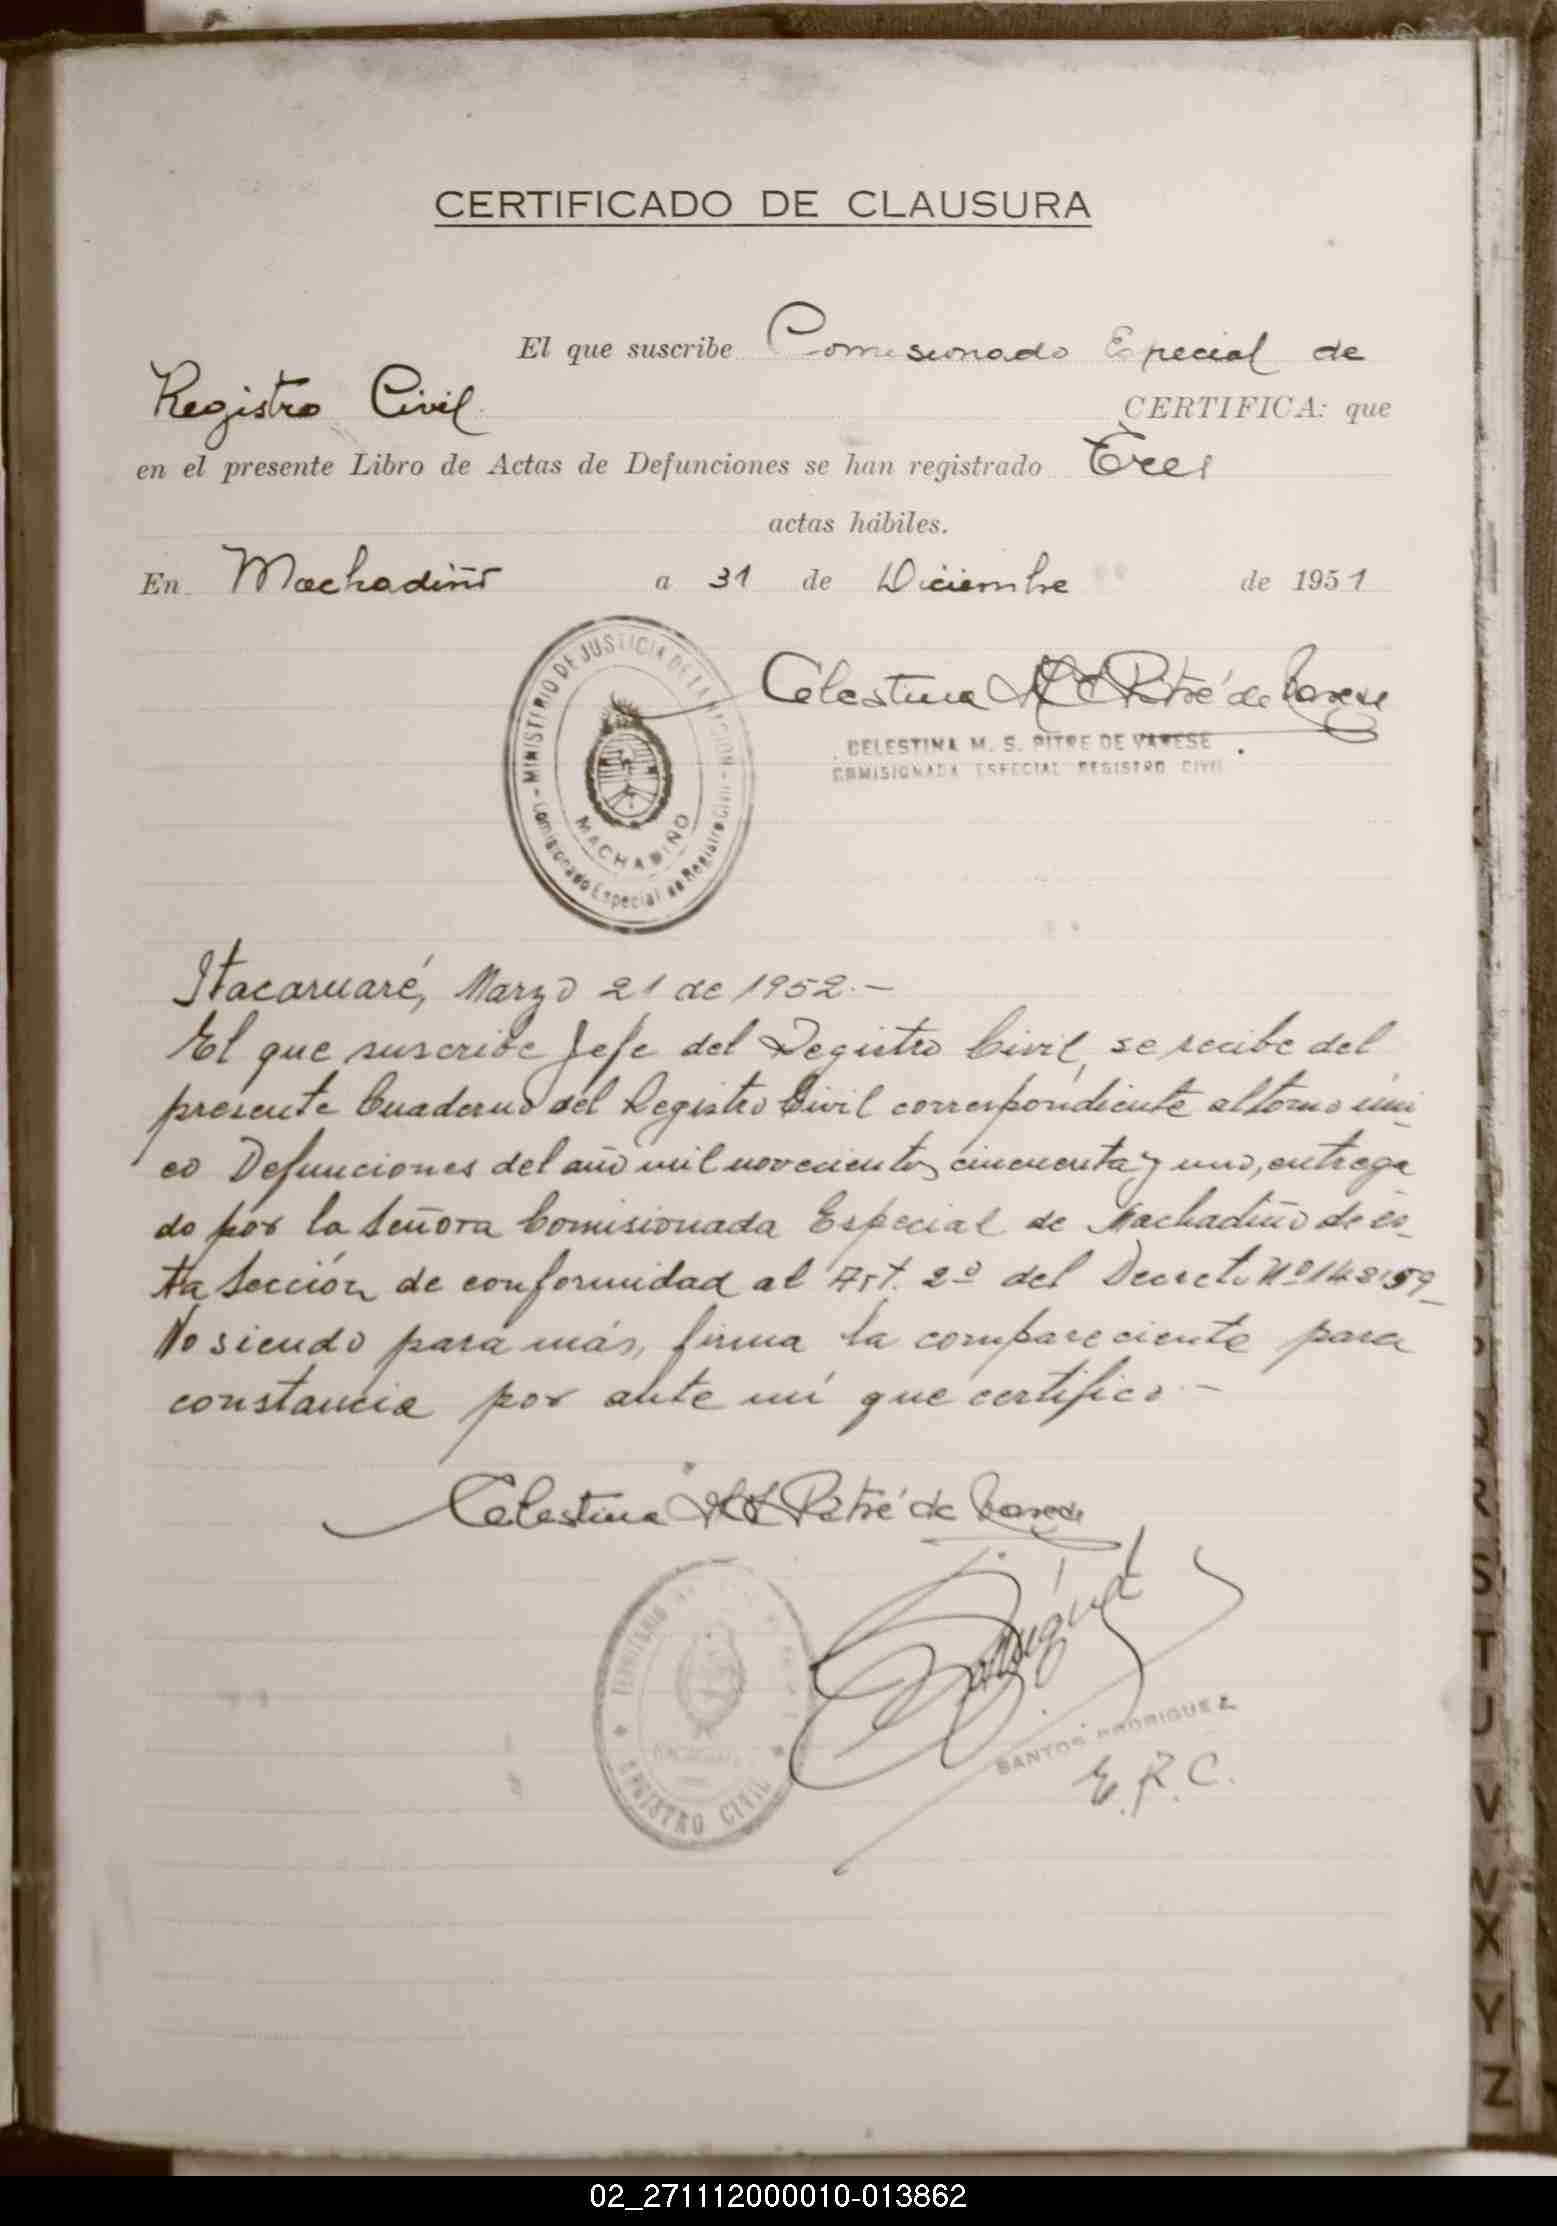 CERTIFICADO DE CLAUSURA
El que suscribe Comisionado Especial de
Registro Civil CERTIFICA: que
en el presente Libro de Actas de Defunciones se han registrado Tres
actas hábiles.
En Machadiño a 31 de Diciembre de 1951
MINISTERIO DE JUSTICIA DE LA NACION
MACHADIÑO
Comisionado Especial de Registro Civil
Celestina M S Pitré de Varese
CELESTINA M. S. PITRE DE VARESE
COMISIONADA ESPECIAL REGISTRO CIVIL
Itacaruaré, Marzo 21 de 1952.-
El que suscribe Jefe del Registro Civil, se recibe del
presente Cuaderno del Registro Civil correspondiente al tomo úni-
co Defunciones del año mil novecientos cincuenta y uno, entrega
do por la Señora Comisionada Especial de Machadiño de és-
ta Sección de conformidad al Art. 2º del Decreto Nº
No siendo para más, firma la compareciente para
constancia por ante mí que certifico.-
Celestina M S Pitré de Varese
TERRITORIO
REGISTRO CIVIL
SRodríguez
SANTOS RODRIGUEZ
E.R.C.
R
S
T
U
V
W
X
Y
Z
02_271112000010-013862